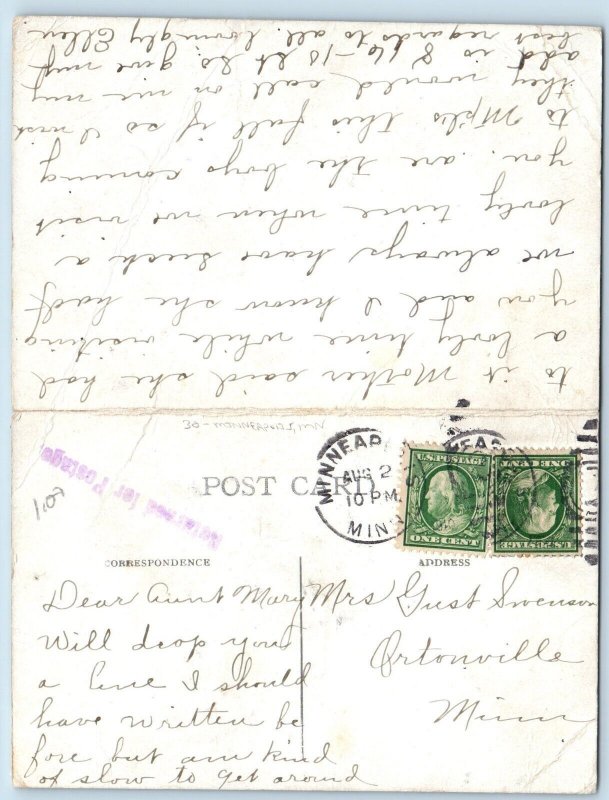 30 - MINNEAPOLIS, MINN
Returned for Postage
1.00
POST CARD
MINNEAP
AUG 2
10 PM
MINN
U.S. POSTAGE
ONE CENT
U.S. POSTAGE
ONE CENT
CORRESPONDENCE
ADDRESS
Mrs Gust Swenson
Ortonville
Minn
Dear Aunt Mary
Will drop you
a line I should
have written be
fore but am kind
of slow to get around
to it Mother said she had
a lovly time while visiting
you and I know she hadf
we always have such a
lovly time when we visit
you. are the boys coming
to Mpls this fall if so I wish
they would call on me my
add is 816-18 St So give my
best regards to all lovingly Ellen